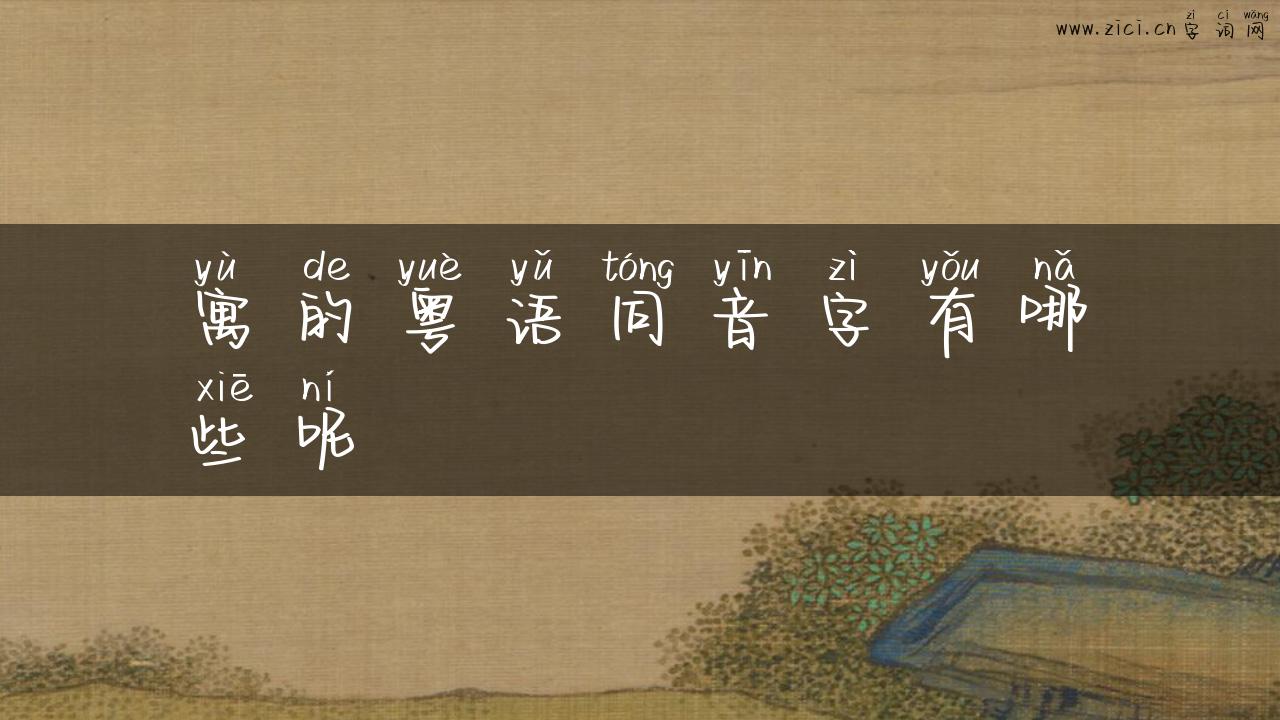 zì cí wǎng
www.zici.cn 字词网
yù de yuè yǔ tóng yīn zì yǒu nǎ
寓的粤语同音字有哪
xiē ní
些呢